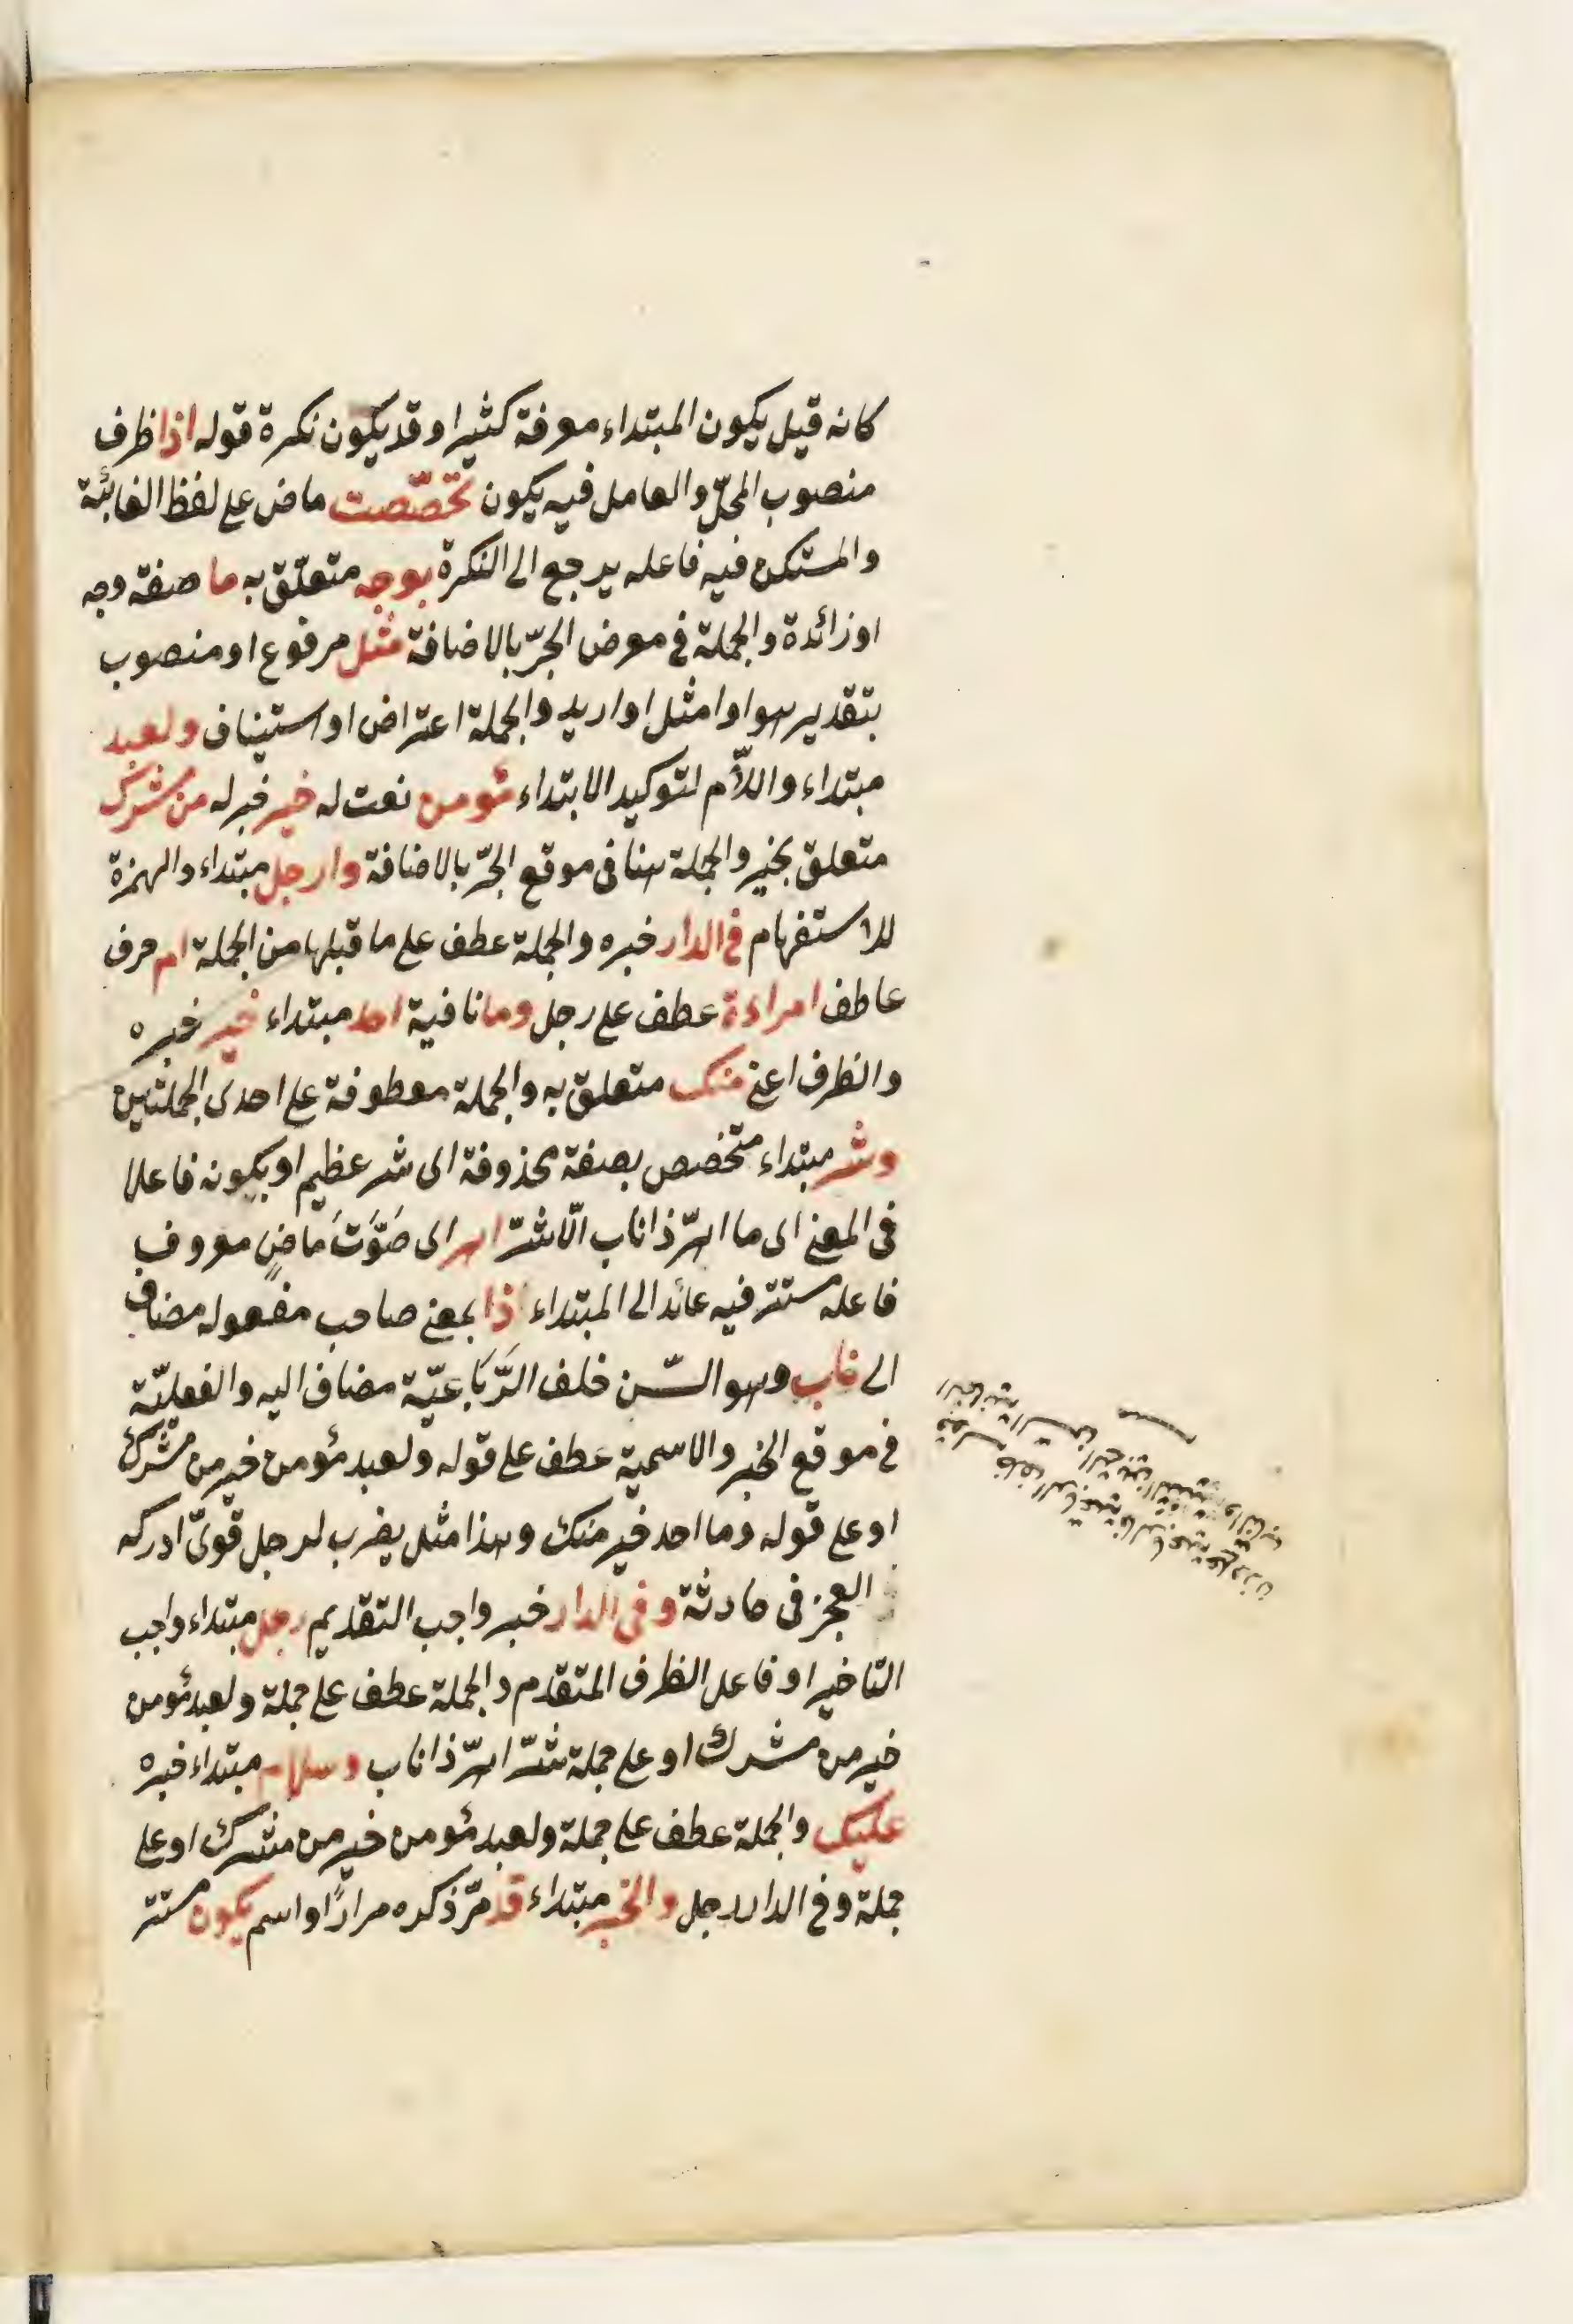 كانه قيل يكون المبتداء معرفة كثيرا وقد يكون نكرة قوله اذا ظرف
منصوب المحلّ والعامل فيه يكون تخصّصت ماض على لفظ الغائبة
والمستكن فيه فاعله يرجع الى النكرة بوجه متعلّق به ما صفة وجه
او زائدة والجملة فى معرض الجرّ بالاضافة مثل مرفوع او منصوب
بتقدير هو او امثل او اريد والجملة اعتراض او استيناف ولعبد
مبتداء واللاّم لتوكيد الابتداء مؤمن نعت له خير خبر له من مشرك
متعلق بخير والجملة هنا فى موقع الجرّ بالاضافة وارجل مبتداء والهمزة
للاستفهام فى الدار خبره والجملة عطف على ما قبلها من الجملة ام حرف
عاطف امراءة عطف على رجل وما نافية احد مبتداء خير خبره
والظرف اعنى منك متعلق به والجملة معطوفة على احدى الجملتين
وشر مبتداء متخصص بصفة محذوفة اى شر عظيم او بكونه فاعلا
فى المعنى اى ما اهرّ ذا ناب الّا شرّ اهر اى صَوَّتَ ماضٍ معروف
فاعله مستتر فيه عائد الى المبتداء ذا بمعنى صاحب مفعوله مضاف
الى ناب وهو السّن خلف الرَّبَاعيّة مضاف اليه والفعليّة
فى موقع الخبر والاسمية عطف على قوله ولعبد مؤمن خير من مشرك
او على قوله وما احد خير منك وهذا مثل يضرب لرجل قوىّ ادركه
العجز فى حادثة وفى الدار خبر واجب التقديم رجل مبتداء واجب
التاخير او فاعل الظرف المتقدم والجملة عطف على جملة ولعبد مؤمن
خير من مشرك او على جملة شرّ اهرّ ذا ناب وسلام مبتداء خبره
عليك والجملة عطف على جملة ولعبد مؤمن خير من مشرك او على
جملة وفى الدار رجل والخبر مبتداء قد مرّ ذكره مرارًا واسم يكون مستتر